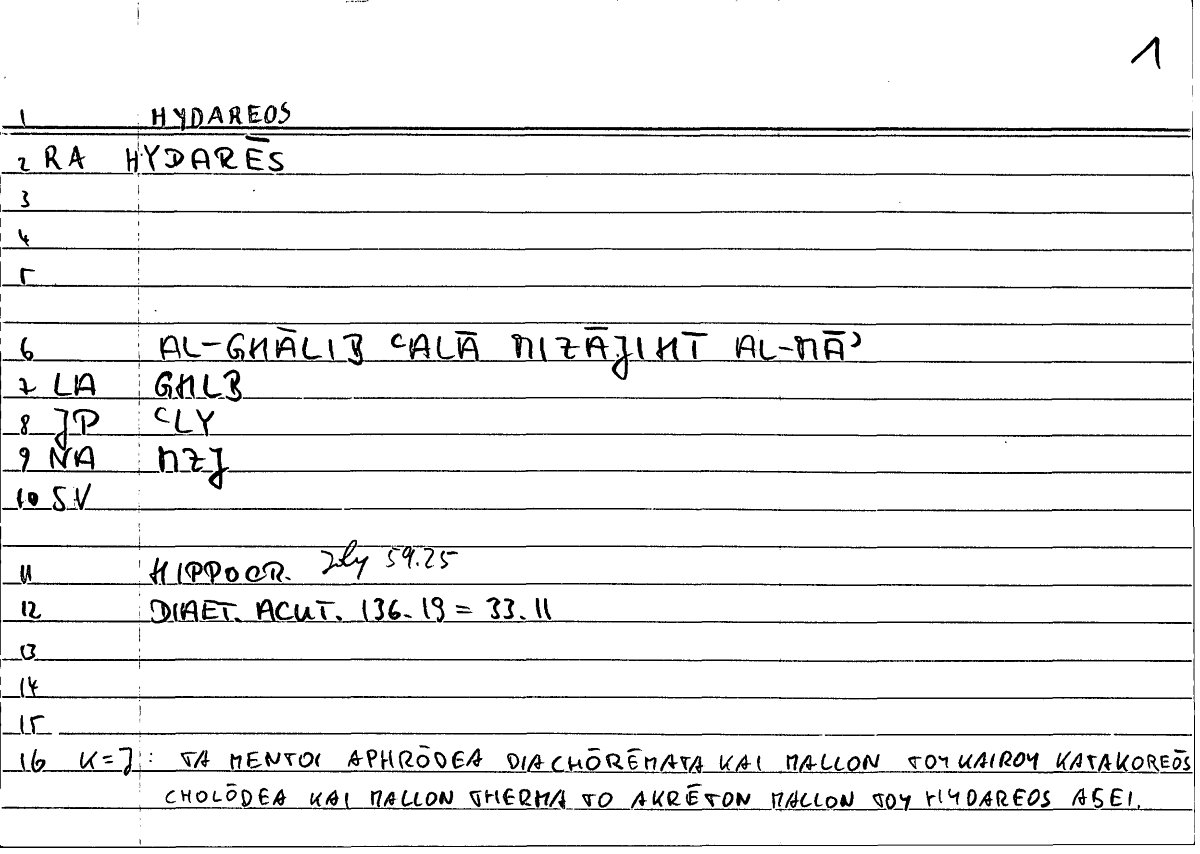 1
1 HYDAREOS
2 RA HYDARĒS
3
4
5
6 AL-GHĀLIB ʿALĀ MIZĀJIHĪ AL-MĀʾ
7 LA GHLB
8 JP ʿLY
9 NA MZJ
10 SV
11 HIPPOCR. 59.25
12 DIAET. ACUT. 136.19 = 33.11
13
14
15
16 K=J: TA MENTOI APHRŌDEA DIACHŌRĒMATA KAI MALLON TOY KAIROY KATAKOREŌS
CHOLŌDEA KAI MALLON THERMA TO AKRĒTON MALLON TOY HYDAREOS AXEI.